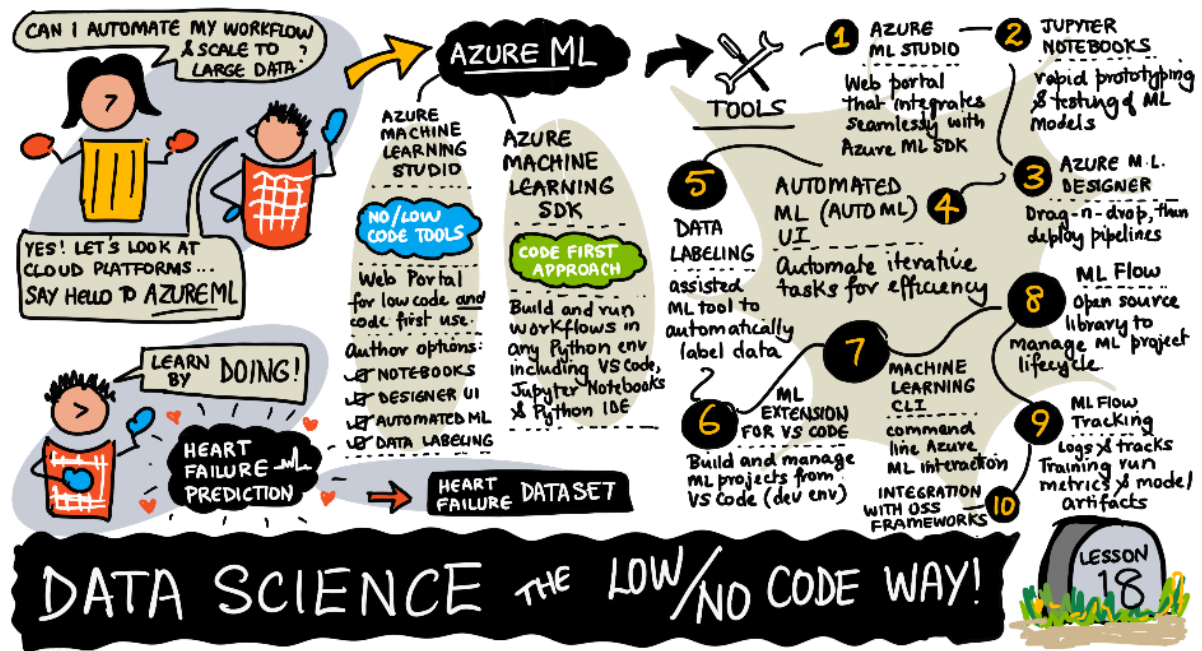 CAN I AUTOMATE MY WORKFLOW
& SCALE TO
LARGE DATA?
YES! LET'S LOOK AT
CLOUD PLATFORMS...
SAY HELLO TO AZUREML
LEARN
BY DOING!
HEART
FAILURE
PREDICTION
HEART
FAILURE DATASET
AZURE ML
AZURE
MACHINE
LEARNING
STUDIO
NO/LOW
CODE TOOLS
Web Portal
for low code and
code first use.
Author options:
NOTEBOOKS
DESIGNER UI
AUTOMATED ML
DATA LABELING
AZURE
MACHINE
LEARNING
SDK
CODE FIRST
APPROACH
Build and run
workflows in
any Python env
including VS Code,
Jupyter Notebooks
& Python IDE
TOOLS
1 AZURE
ML STUDIO
Web portal
that integrates
seamlessly with
Azure ML SDK
2 JUPYTER
NOTEBOOKS
rapid prototyping
& testing of ML
Models
3 AZURE M.L.
DESIGNER
Drag-n-drop, then
deploy pipelines
4
AUTOMATED
ML (AUTO ML)
UI
Automate iterative
tasks for efficiency
5
DATA
LABELING
assisted
ML tool to
automatically
label data
6
ML
EXTENSION
FOR VS CODE
Build and manage
ML projects from
VS Code (dev env)
7
MACHINE
LEARNING
CLI
command
line Azure
ML interaction
8 ML FLOW
Open source
library to
manage ML project
lifecycle.
9 ML FLOW
Tracking
Logs & tracks
Training run
metrics & model
artifacts
10
INTEGRATION
WITH OSS
FRAMEWORKS
DATA SCIENCE THE LOW/NO CODE WAY!
LESSON
18